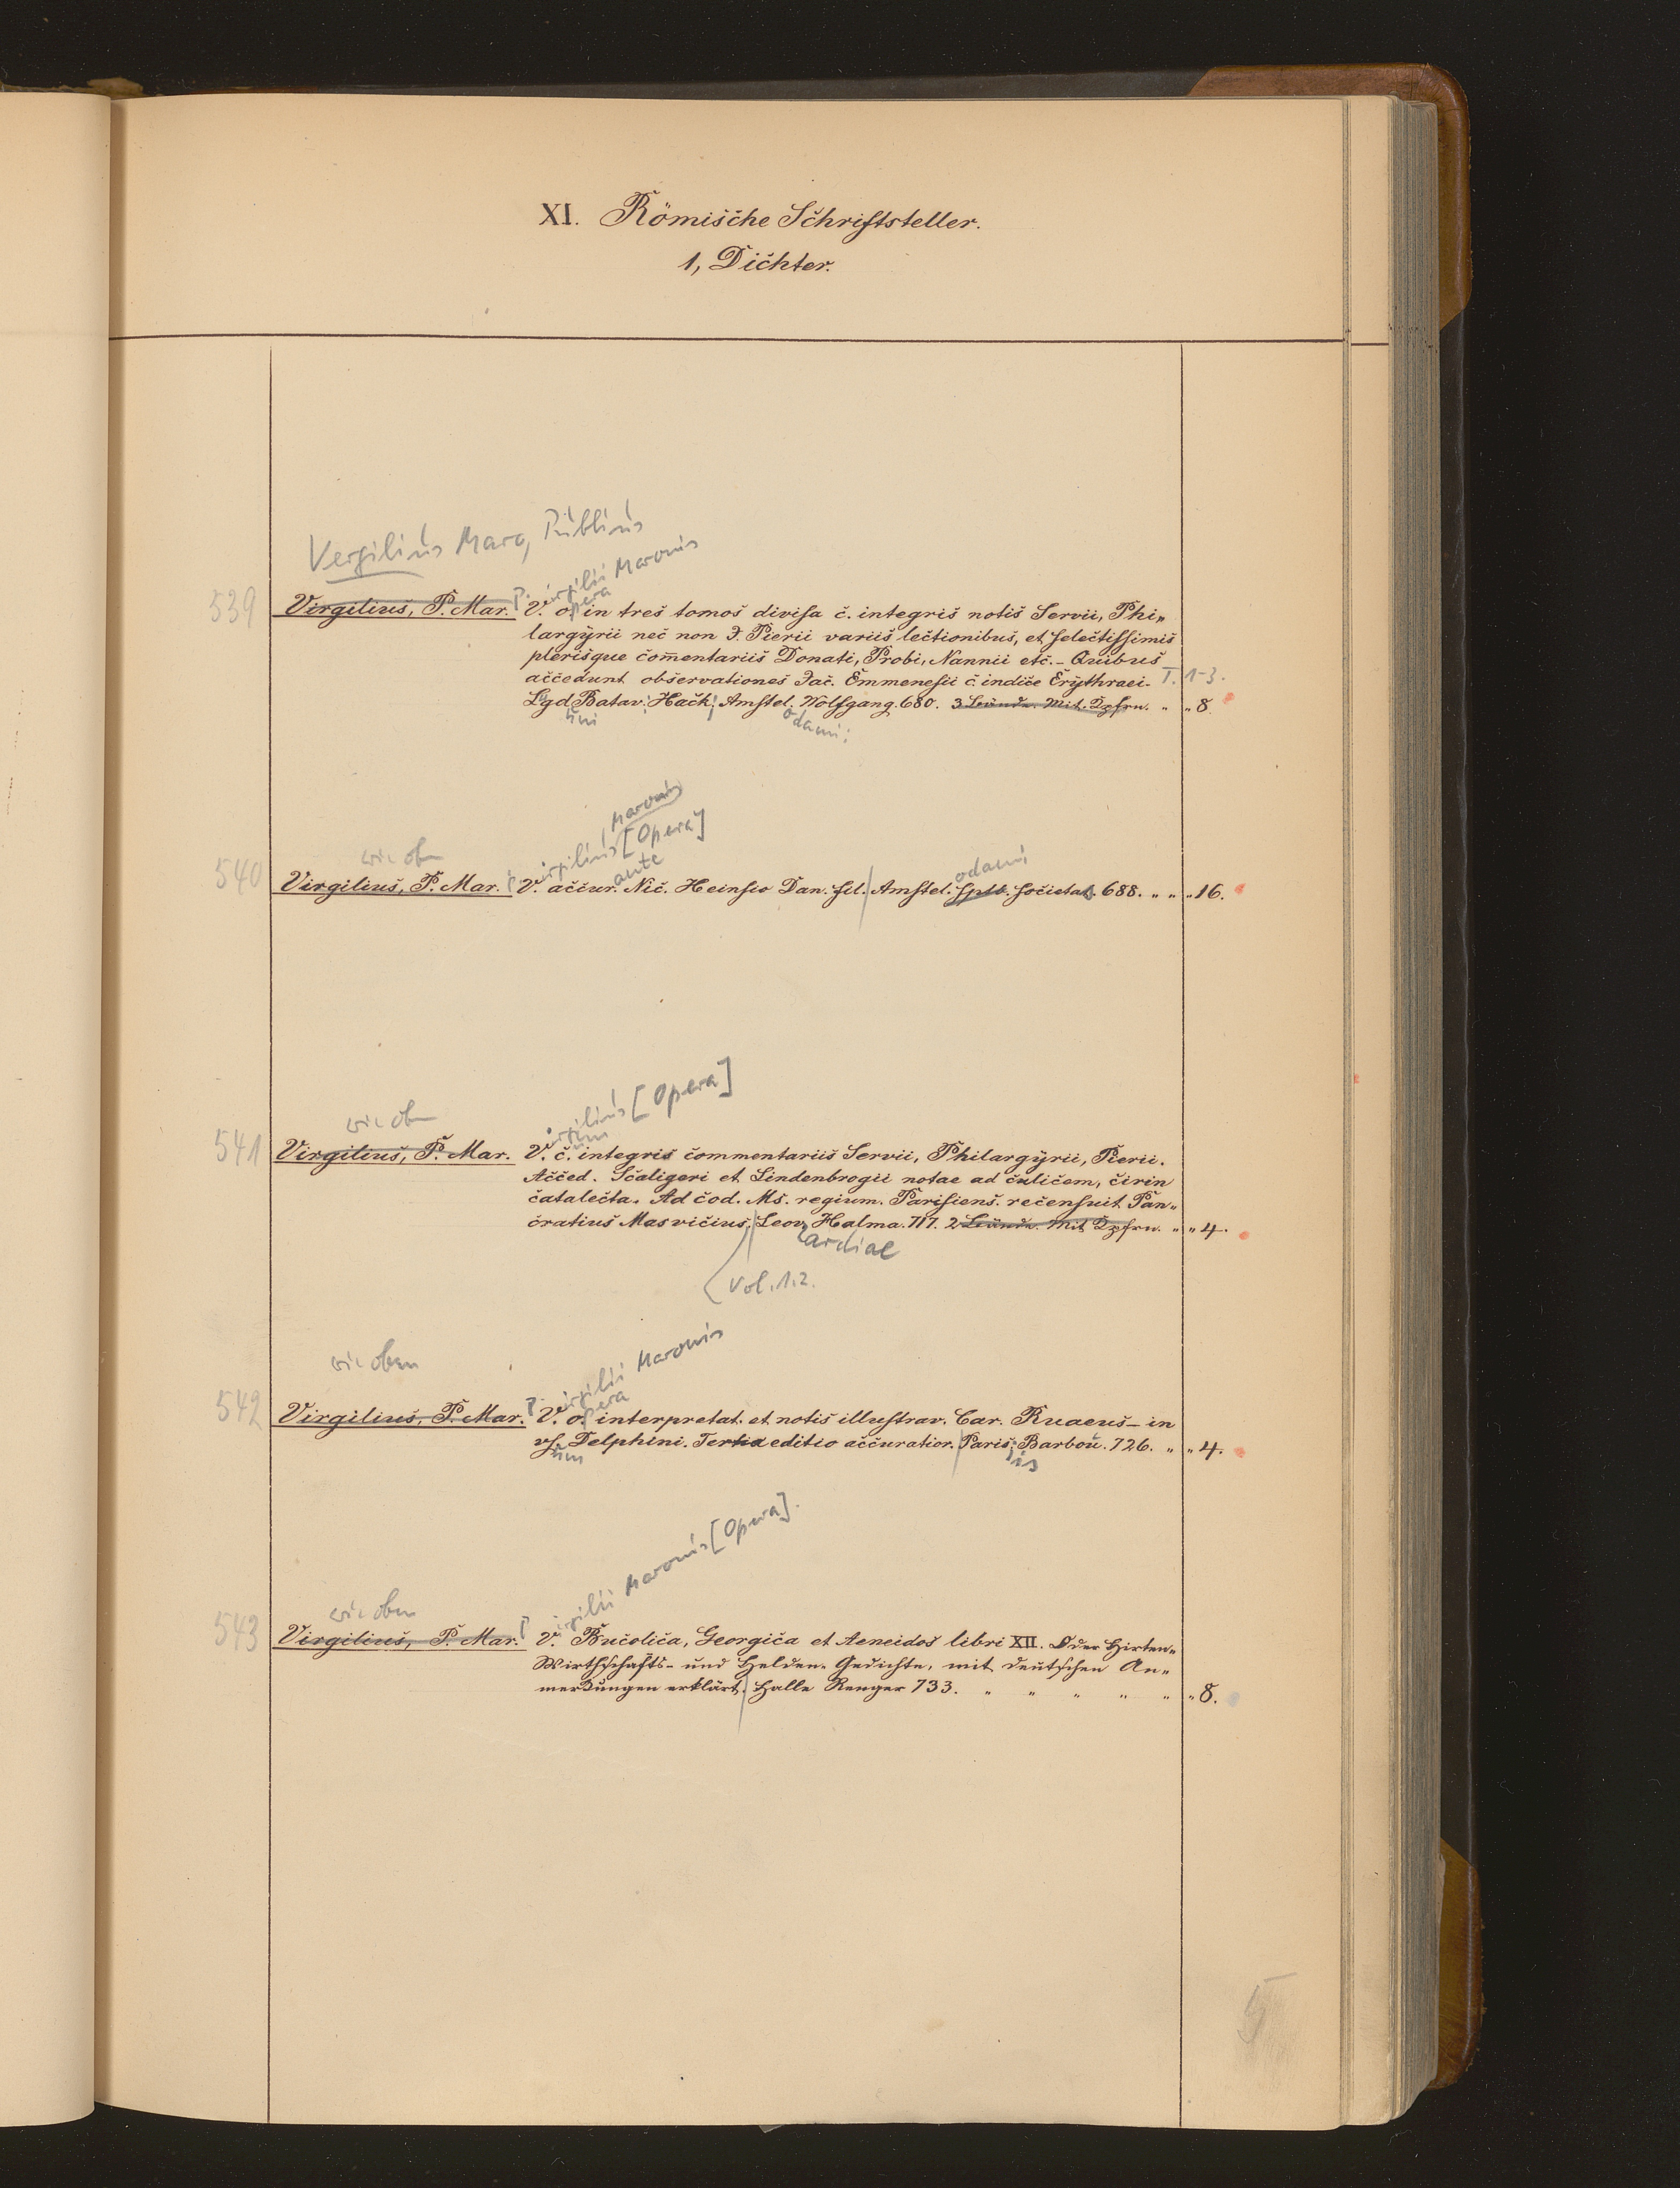 XI. Römische Schriftsteller.
1, Dichter.
Vergilius Maro, Publius
P. Virgilii Maronis
opera
539 Virgilius, P. Mar. V. o. in tres tomos divisa c. integris notis Servii, Phi„
largyrii nec non J. Pierii variis lectionibus, et selectissimis
plerisque com̄entariis Donati, Probi, Nannii etc. - Quibus
accedunt observationes Jac. Emmenesii c. indice Erythraei. T. 1-3.
Lgd Batav. Hack. Amstel. Wolfgang. 680. 3 Bände. Mit Kpfrn. „ „ 8.
odami:
Maronis
wie oben irgilius [Opera]
ante odami
540 Virgilius, P. Mar. P. V. accur. Nic. Heinsio Dan. fil. Amstel. sptb. societat. 688. „ „ „ 16.
wie oben irgilius [Opera]
um
541 Virgilius, P. Mar. V. c. integris commentariis Servii, Philargyrii, Pierii.
Acced. Scaligeri et Lindenbrogii notae ad culicem, cirin
catalecta. Ad cod. Ms. regium. Parisiens. recensuit Pan„
cratius Masvicius. Leov. Halma. 717. 2 Bände. Mit Kpfrn. „ „ 4.
ardiae
Vol. 1.2.
wie oben irgilii Maronis
opera
542 Virgilius, P. Mar. P. V. o. interpretat. et notis illustrav. Car. Ruaeus - in
us. Delphini. Tertia editio accuratior. Paris. Barbou. 726. „ „ 4.
um iis
wie oben irgilii Maronis [Opera].
543 Virgilius, P. Mar. P V. Bucolica, Georgica et Aeneidos libri XII. Oder Hirten„
Wirthschafts- und Helden- Gedichte, mit deutschen An„
merkungen erklärt. Halle Renger 733. „ „ „ „ „ „ 8.